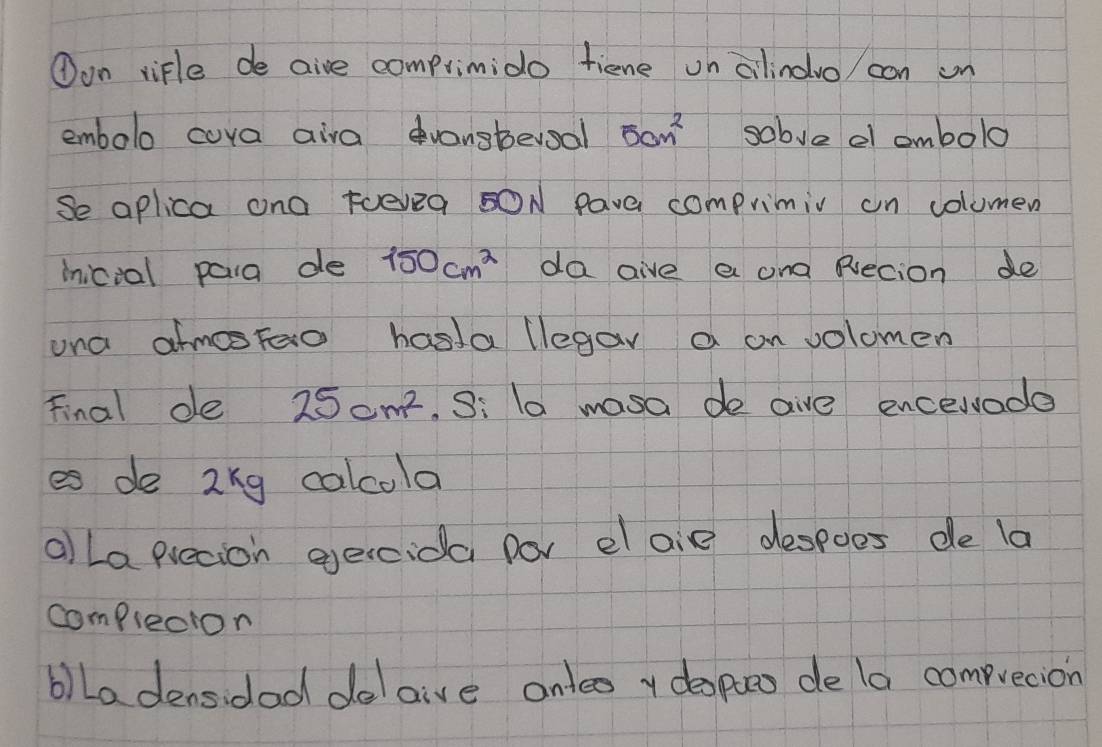 ① un rifle de aire comprimido tiene un cilindro/con un
embolo cuya aira transbersal 5cm² sobre el embolo
se aplica una fuerza 50N para comprimir un volumen
inicial para de 150cm² da aire a una Precion de
una atmosfera hasta llegar a un volumen
final de 25cm². Si la masa de aire encerrado
es de 2Kg calcula
a) La Precion ejercida por el aire despues de la
complecion
b) La densidad del aire antes y despues de la comprecion